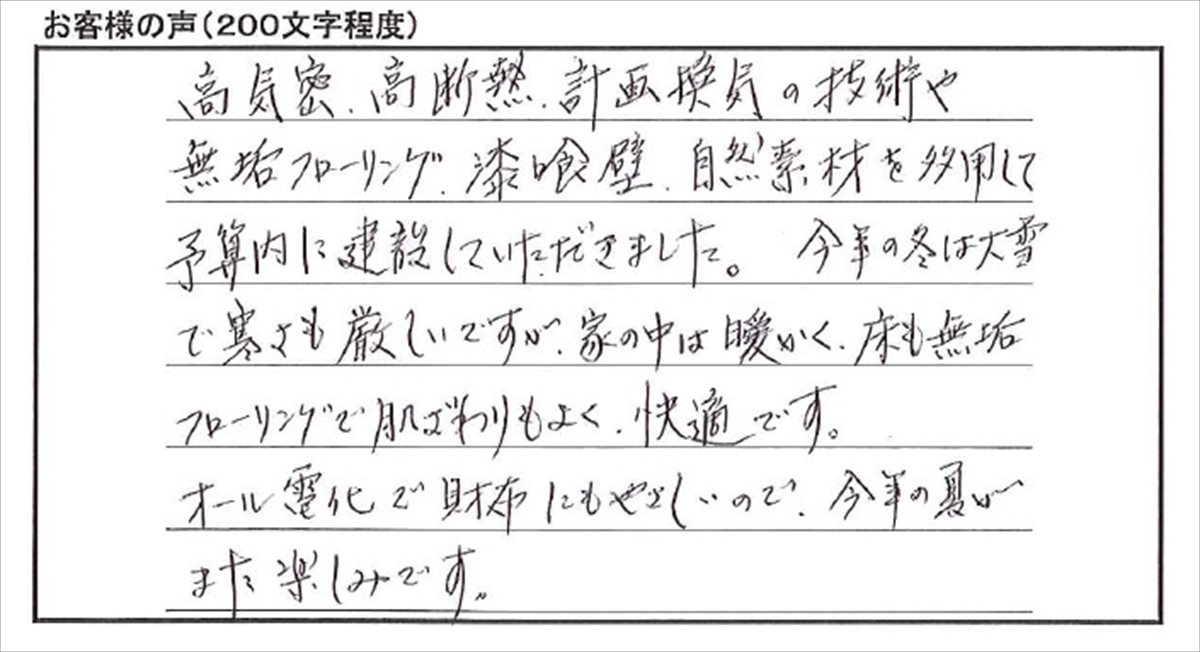 お客様の声(200文字程度)
高気密、高断熱、計画換気の技術や
無垢フローリング、漆喰壁、自然素材を多用して
予算内に建設していただきました。 今年の冬は大雪
で寒さも厳しいですが、家の中は暖かく、床も無垢
フローリングで肌ざわりもよく、快適です。
オール電化で財布にもやさしいので、今年の夏が
また楽しみです。